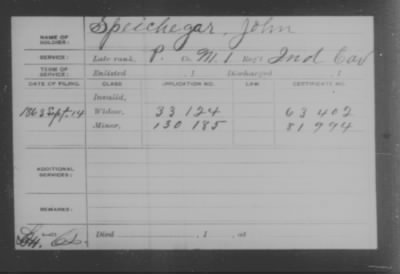 NAME OF SOLDIER: Speichegar, John
SERVICE: Late rank, P. Co. M. 1 Reg't Ind Cav
TERM OF SERVICE: Enlisted , 1 Discharged 1
DATE OF FILING. CLASS APPLICATION NO. LAW. CERTIFICATE NO.
Invalid,
1863 Sept. 14 Widow, 33 124 63 402
Minor, 130 185 81 994
ADDITIONAL SERVICES:
REMARKS:
Died , 1 , at